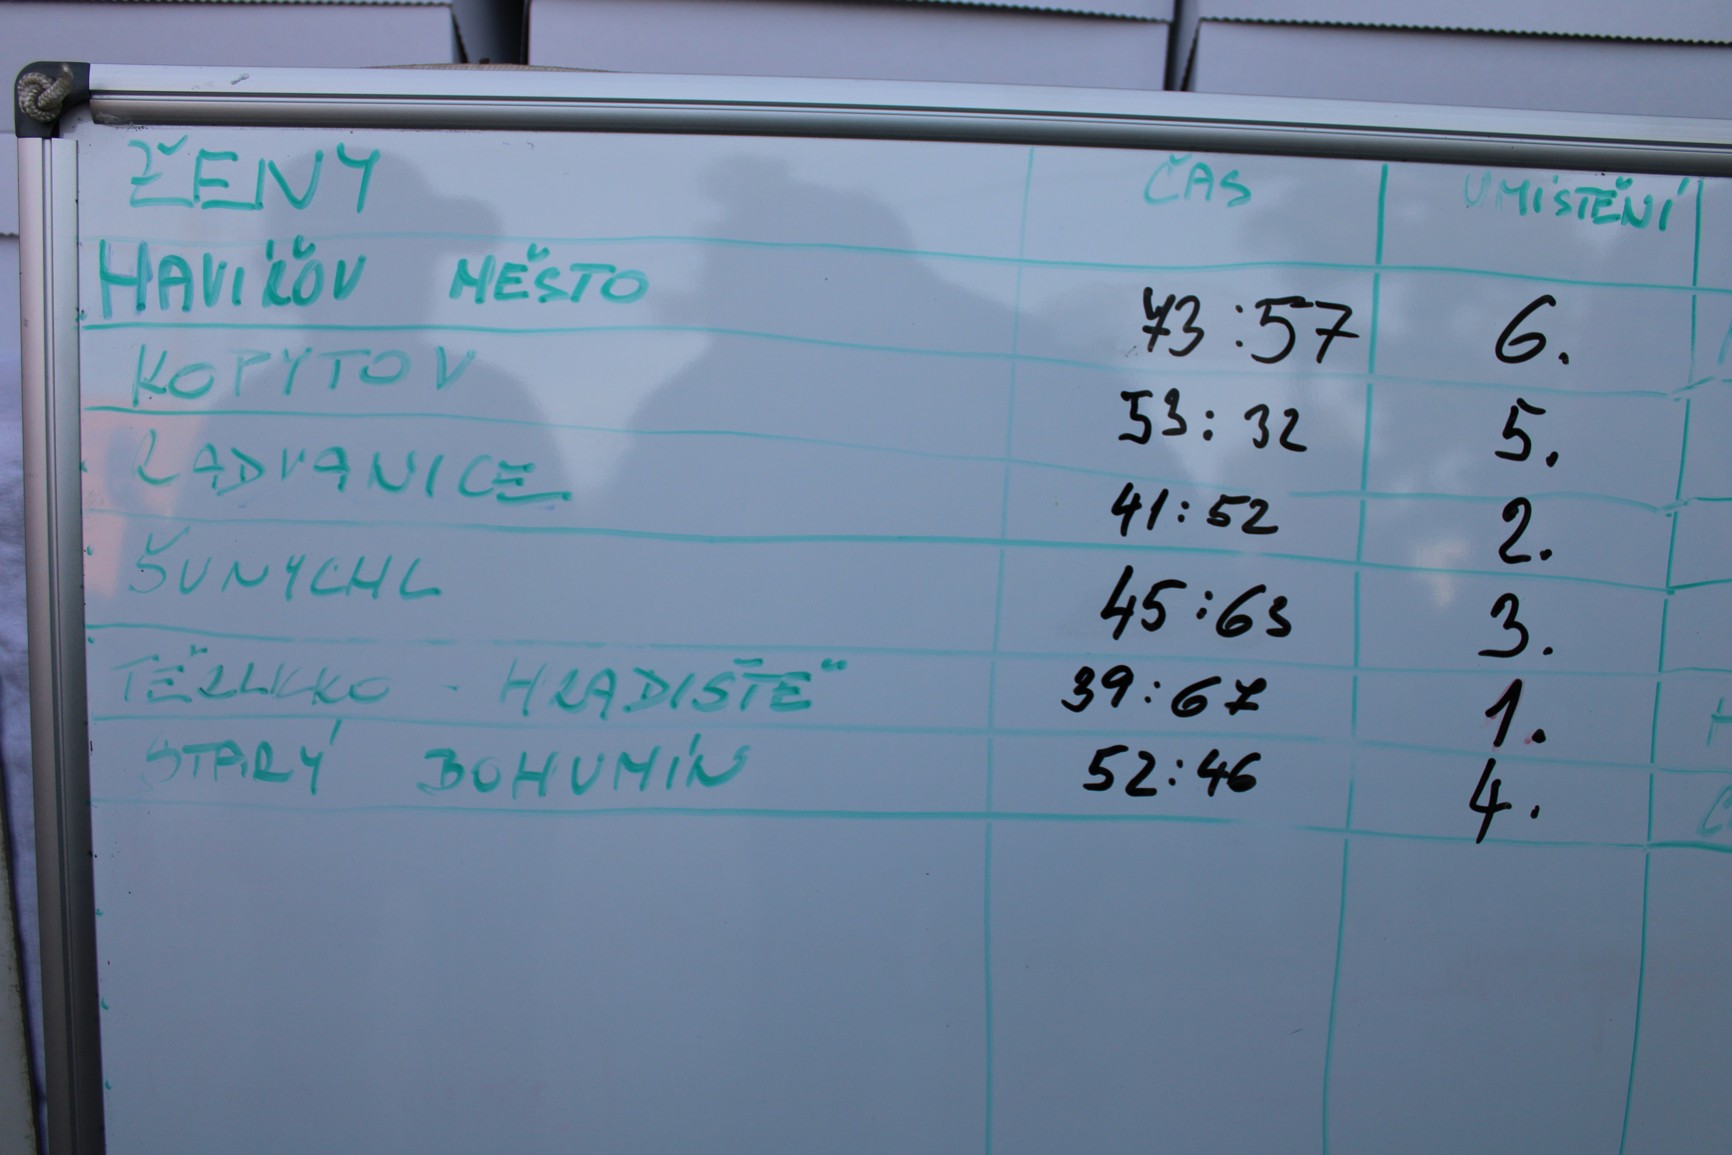 ŽENY ČAS UMÍSTĚNÍ
HAVÍŘOV MĚSTO 73:57 6.
KOPYTOV 53:32 5.
RADVANICE 41:52 2.
ŠUNYCHL 45:63 3.
TĚRLICKO - HRADIŠTĚ 39:67 1.
STARÝ BOHUMÍN 52:46 4.